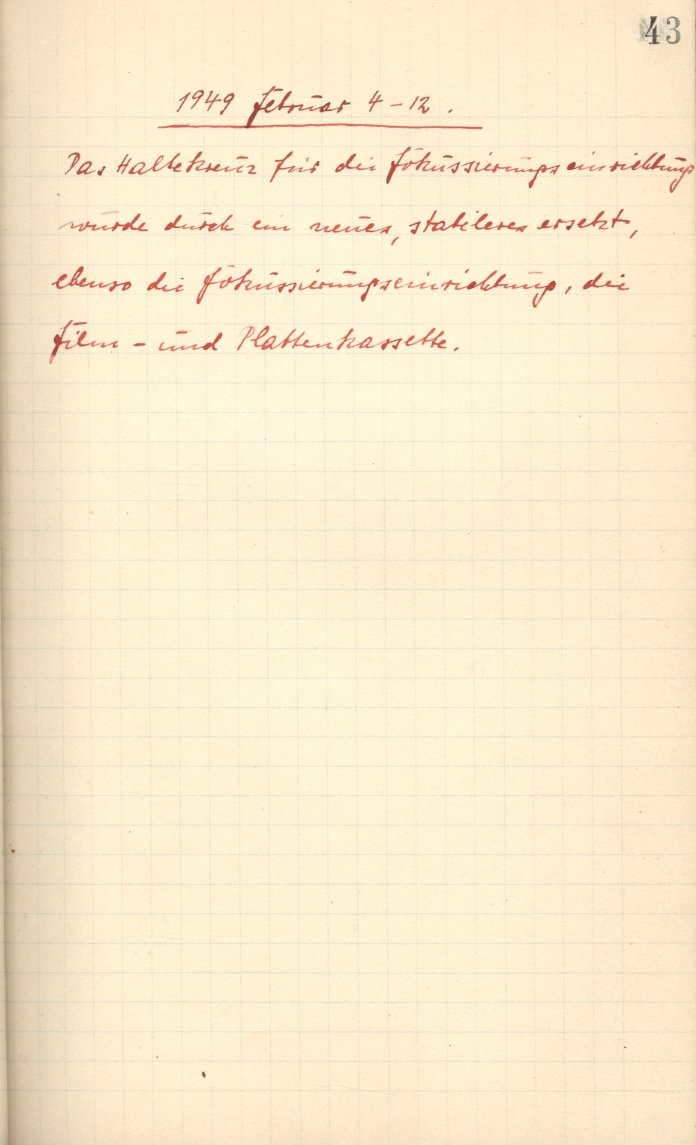 43
1949 Februar 4-12.
Das Haltekreuz für die Fokussierungseinrichtung
wurde durch ein neues, stabileres ersetzt,
ebenso die Fokussierungseinrichtung, die
Film- und Plattenkassette.